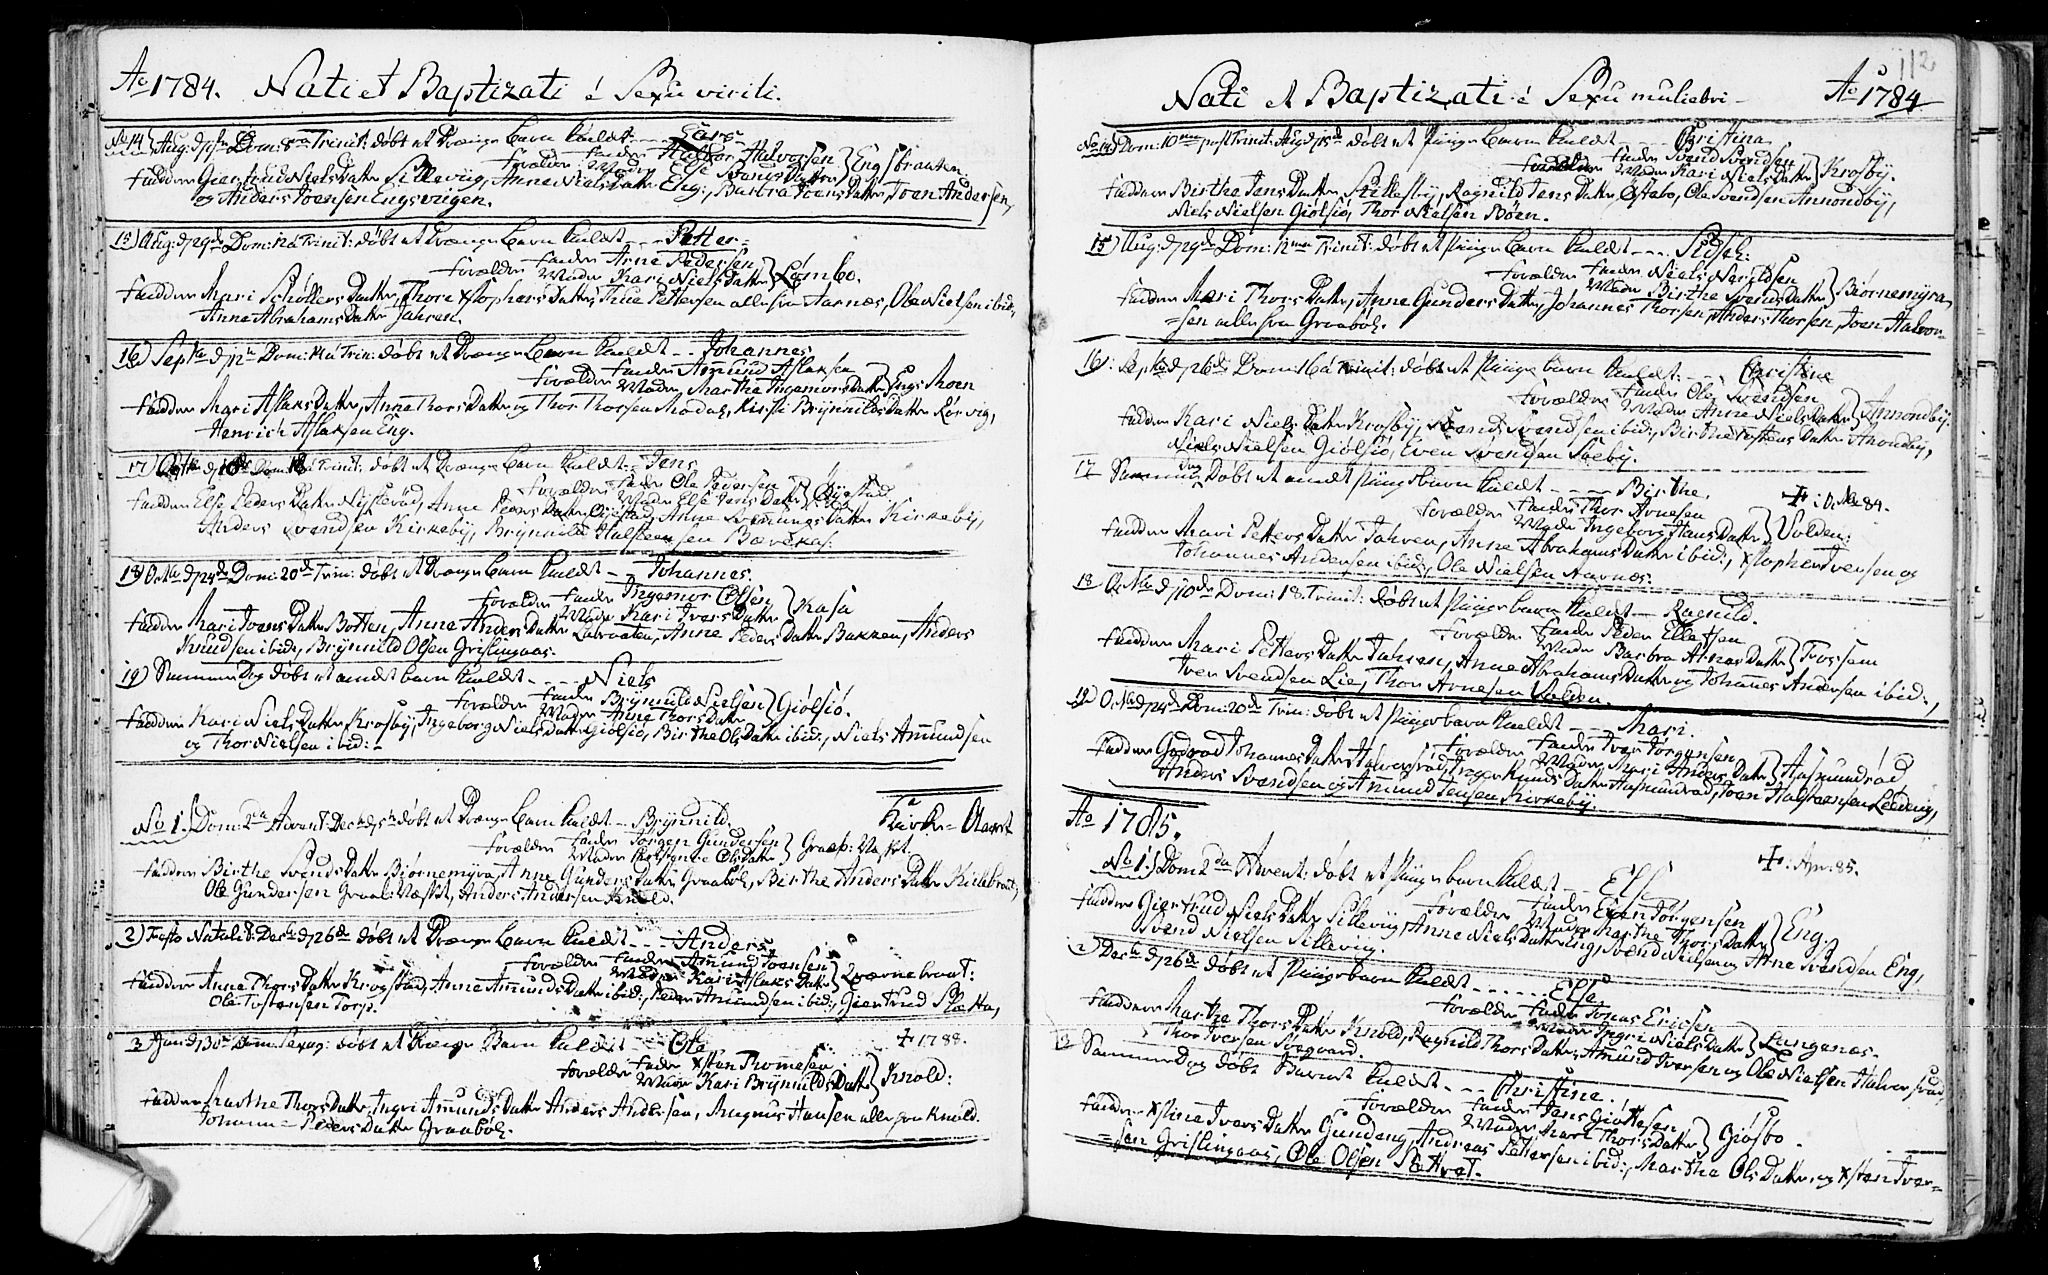 Ao 1784. Nati et Baptizati é Sexu virili.
No 14 Aug: d: Dom: 8va Trinit: døbt et Drænge Barn kuldet - - Lars
Forældre Fader Halvor Halvorsen
Moder Else Svends Datter } Engsbraaten.
Faddere Giertrud Niels Datter Silleviig, Anne Niels Datter Eng:, Barbra Joens Datter, Joen Andersen,
og Anders Joensen Engsvigen.
15) Aug: d 29de Dom: 12ta Trinit: døbt et Drænge Barn kuldet - - - Petter -
Forældre Fader Arne Pedersen
Moder Kari Niels Datter } Lømbo.
Faddere Mari Schøllers Datter, Thore Xstophers Datter, Thue Pettersen alle fra Aarnæs, Ole Nielsen ibid:,
Anne Abrahams Datter Jahren.
16) Septbr d 12te Dom: 14 á Trin: døbt et Drænge Barn kuldet - - Johannes
Forældre Fader Amund Aslaksen
Moder Marthe Ingemors Datter } Engs Moen
Faddere Mari Aslaks Datter, Anne Thors Datter og Thor Thorsen Modaas, Kirsti Brynnilds Datter Rørvig,
Henrich Aslaksen Eng.
17) Octbr d 10de Dom: 18 á Trinit: døbt et Drænge Barn kuldet - Jens
Forældre Fader Ole Pedersen
Moder Else Jens Datter } Øyestad
Faddere Else Peders Datter, Anne Joens Datter Øyestad, Anne Svennungs Datter Kirkebÿ,
Anders Svendsen Kirkebÿ, Brynnild Halsteensen
18) Octbr d 24de Dom: 20de Trin: døbt et Drænge Barn kuldet - Johannes.
Forældre Fader Ingemor Olsen
Moder Kari Ivers Datter } Kasa
Faddere Mari Ivers Datter Botten, Anne Anders Datter Labraaten, Anne Peders Datter Bakken, Anders
Knudsen ibid:, Brynnild Olsen Grislingaas.
19) Samme Dag døbt et andet barn kuldet - - - - Niels
Forældre Fader Brynnild Nielsen
Moder Anne Thors Datter } Giølsiø.
Faddere Kari Niels Datter Krosbÿ, Ingeborg Niels Datter Giølsiø, Birthe Ols Datter ibid:, Niels Amundsen
og Thor Nielsen ibid: -
No 1. Dom: 2da Advent: Decbr d 5te døbt et Drænge Barn kuldet - Brynnild.
Kirke-Aaret
Forældre Fader Jørgen Gundersen
Moder Ols Datter } Graab: Næstet.
Faddere Birthe Svends Datter Biørnemÿra, Anne Gunders Datter Graaböl, Birthe Anders Datter Killebraat,
Ole Gundersen Graab: Næstet, Anders Andersen Knold.
2) Festo Natalit: Decbr d 26de døbt et Drænge Barn kuldet - - Anders.
Forældre Fader Amund Joensen
Moder Kari Aslaks Datter } Qværnebraat:
Faddere Anne Thors Datter Krogstad, Anne Amunds Datter ibid:, Peder Amundsen ibid:, Giertrud Slætta,
Ole Tostensen Torp.
3 Jan: d 30te Dom: Sexag: døbt et Drænge Barn kuldet - - Ole
✝ 1788.
Forældre Fader Xsten Thomesen
Moder Kari Brÿnnilds Datter } Knold:
Faddere Marthe Thors Datter, Ingri Amunds Datter Anders Andersen, Magnus Hansen alle fra Knold.
Johanne Peders Datter Graaböl.
112
Nati et Baptizati é Sexu muliebri - Ao 1784
No 14) Dom: 10ma post Trinit: Aug d 15de døbt et Piige Barn kuldet - - - Christina
Forældre Fader Svend Svendsen
Moder Kari Niels Datter } Krosbÿ.
Faddere Birthe Jens Datter Stillesbÿ, Ragnild Jens Datter Østebo, Ole Svendsen Annondbÿ,
Niels Nielsen Giølsiø, Thor Nielsen Böen.
15) Aug: d 29de Dom: 12ma Trinit: døbt et Piige Barn kuldet - - - - Sidsel:
Forældre Fader Niels
Moder Birthe Svends Datter } Biørnemÿra
Faddere Mari Thors Datter, Anne Gunders Datter, Johannes Thorsen, Anders Thorsen, Joen Halvor=
=sen alle fra Graaböl.
16): Septbr d 26de Dom: 16 á Trinit: døbt et Piige barn kuldet: - - - Christine
Forældre Fader Ole Svendsen
Moder Anne Niels Datter } Annondbÿ.
Faddere Kari Niels Datter Krosbÿ, Svend Svendsen ibid:, Birthe Tostens Datter Anondbÿ,
Niels Nielsen Giølsiø, Even Svendsen Søebÿ.
17 Samme Dag døbt et andet Piige barn kuldet - - - - Birthe.
✝: i Octbr 84.
Forældre Fader Thor Arnesen
Moder Ingeborg Hans Datter } Volden:
Faddere Mari Petters Datter Jahren, Anne Abrahams Datter ibid:, Xstopher Iversen og
Johannes Andersen ibid:, Ole Nielsen Aarnæs.
18 Octbr d 10de Dom: 18. Trinit: døbt et Piige barn kuldet - Ragnild.
Forældre Fader Peder Ellefsen
Moder Barbra Arnes Datter } Fossem
Faddere Mari Petters Datter Jahren, Anne Abrahams Datter og Johannes Andersen ibid:,
Iver Svendsen Lie, Thor Arnesen Volden.
19) Octbr d 24de Dom: 20de Trin: døbt et Piige barn kuldet - - - Mari.
Forældre Fader Iver Jørgensen
Moder Mari Anders Datter } Hasmundrød
Faddere Johannes Datter Halversrød, Inger Knuds Datter Hasmundrød, Joen Halsteensen Leedeng,
Anders Svendsen og Amund Jensen Kirkebÿ.
Ao 1785.
No 1. Dom 2da Advent: døbt et Piige barn kuldet - - Else
✝: Apr: 85.
Forældre Fader Even Jørgensen
Moder Marthe Thors Datter } Eng.
Faddere Giertrud Niels Datter Silleviig, Anne Niels Datter Eng, Svend Nielsen og Arne Svendsen Eng,
Svend Nielsen Silleviig.
2) Decbr d 26de døbt et Piige barn kuldet - - - - - - Else
Forældre Fader Jonas Ericsen
Moder Ingri Niels Datter } Lunganæs.
Faddere Marthe Thors Datter Knold, Ragnild Thors Datter, Amund Iversen og Ole Nielsen Halversrød,
Thor Iversen Søegaard.
3 Samme Dag døbt Barnet kuldet - - - Christine.
Forældre Fader Jens Giøttesen
Moder Mari Thors Datter } Giøsbo.
Faddere Xstine Ivers Datter Gundeng, Andreas Pettersen ibid:, Marthe Ols Datter, og Xsten Iver=
=sen Grislingaas, Ole Olsen Slettet.